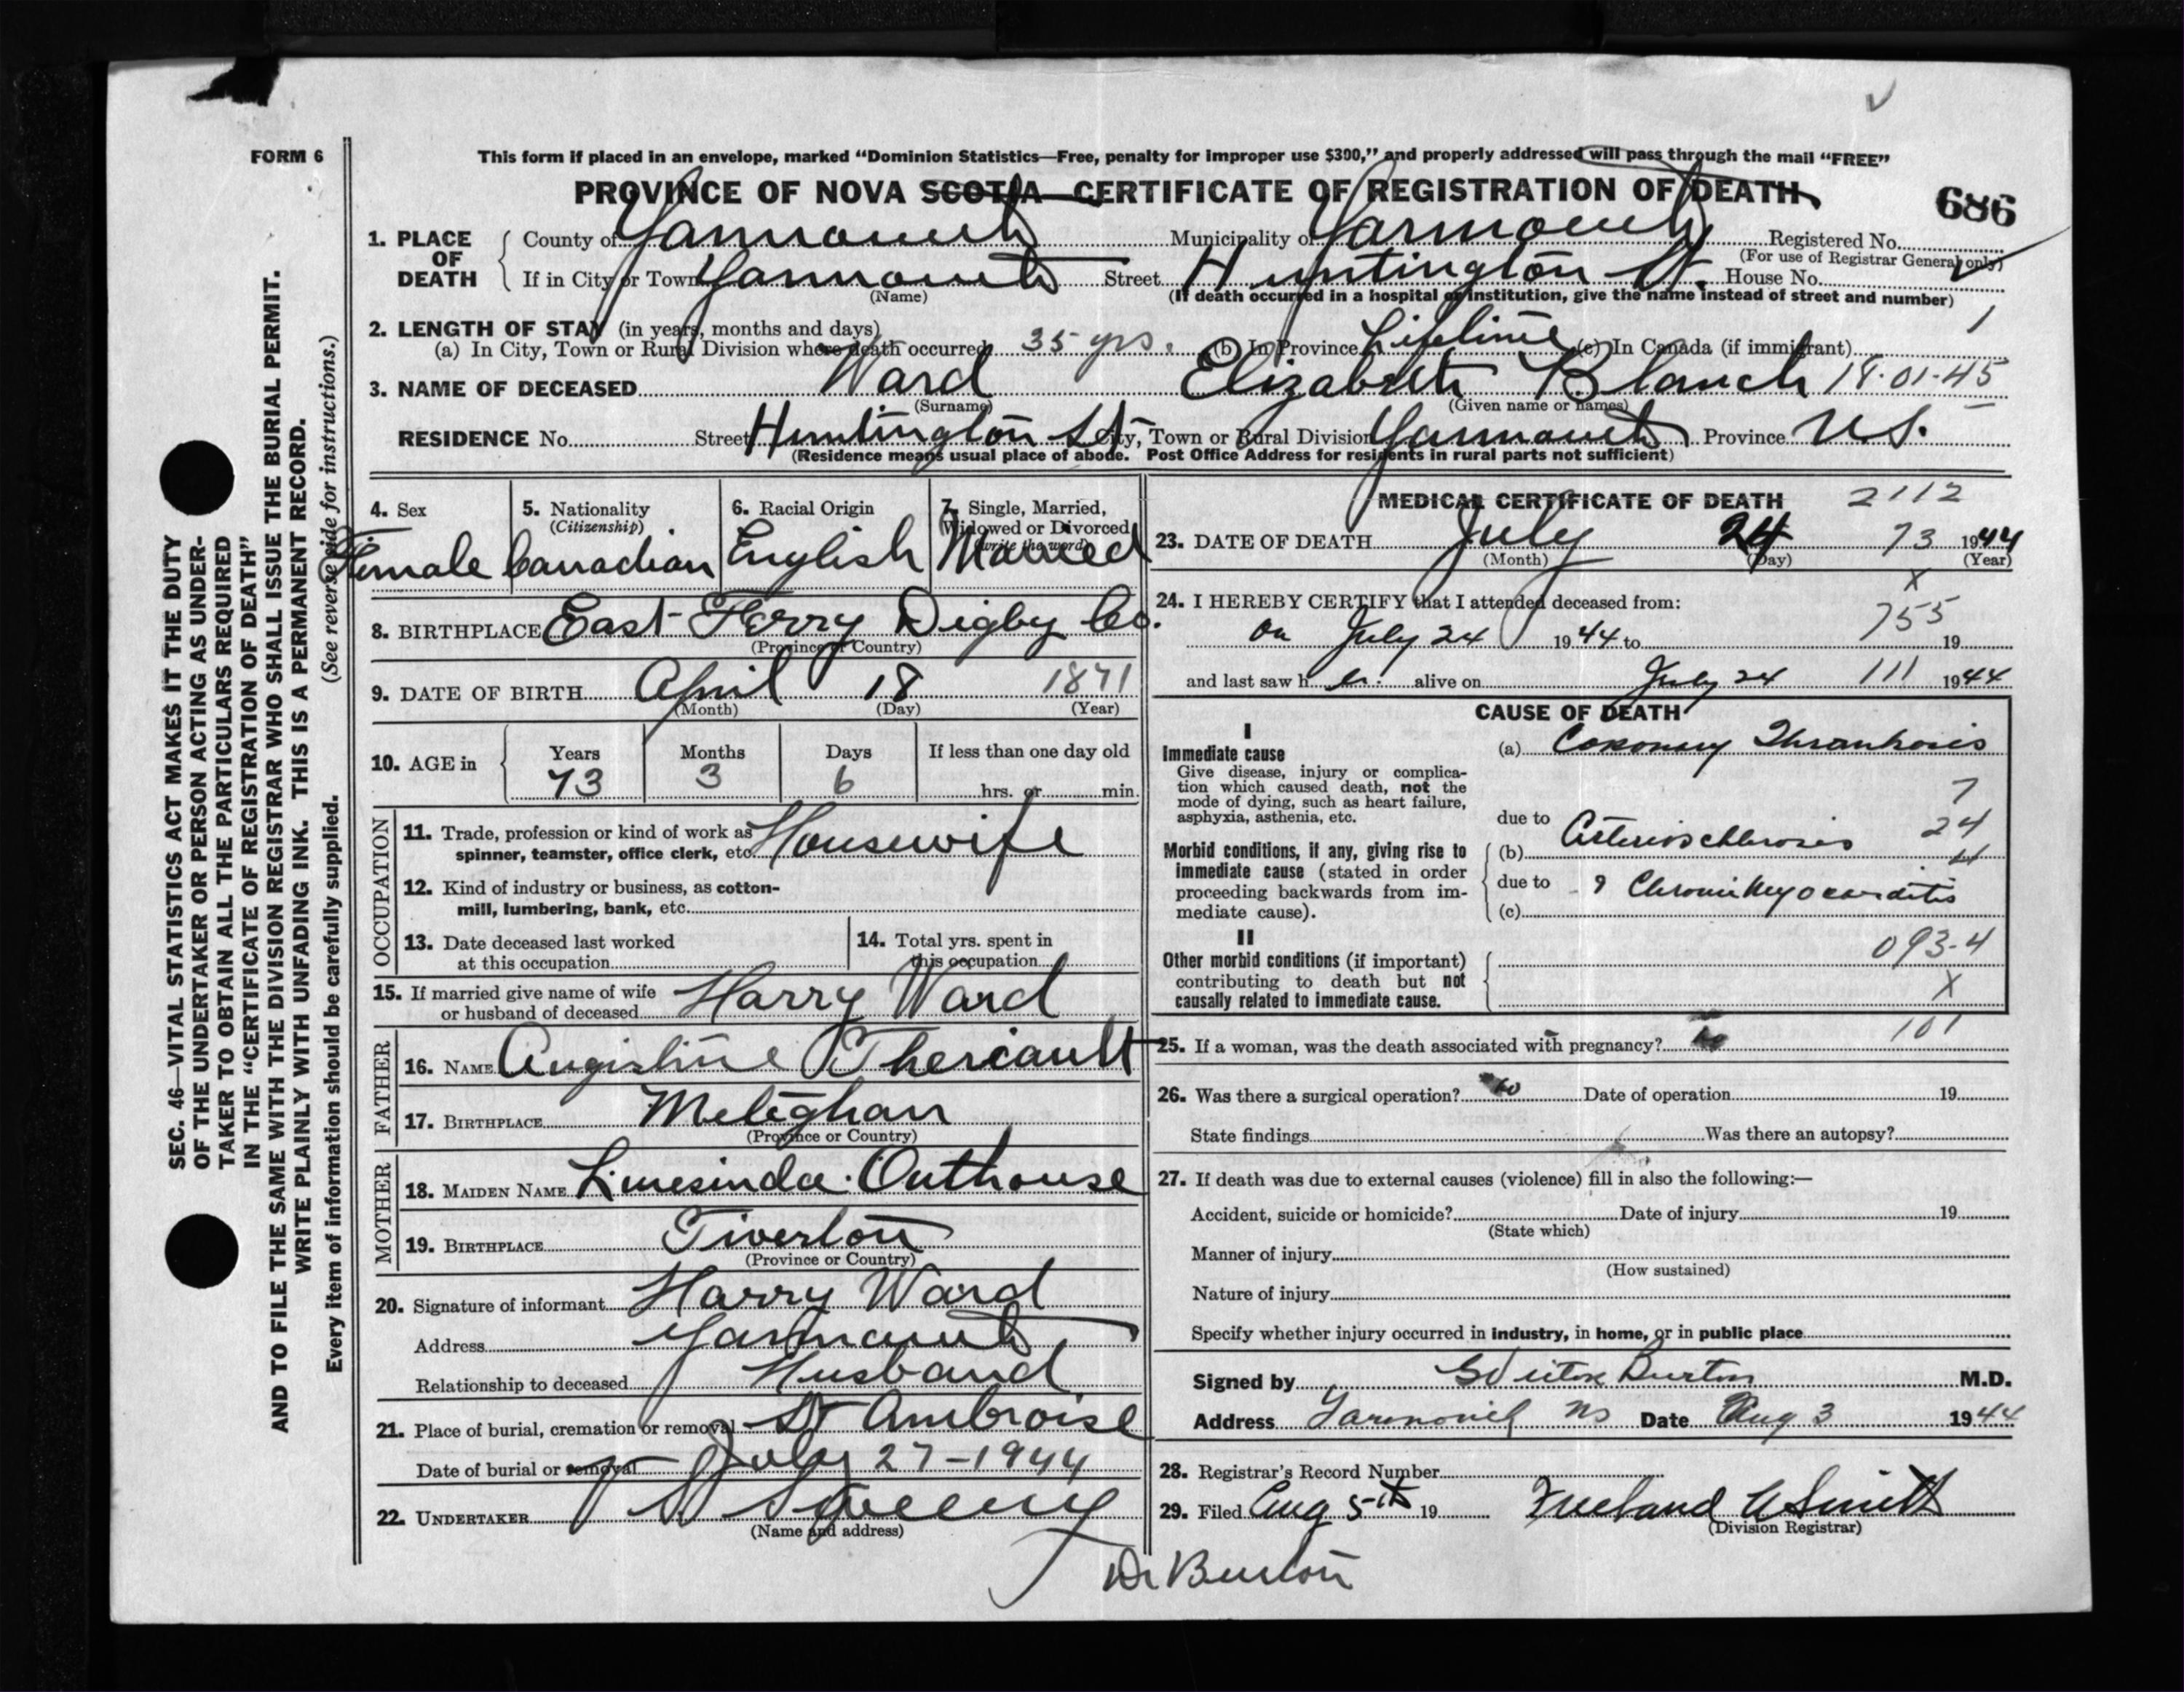 FORM 6
This form if placed in an envelope, marked “Dominion Statistics—Free, penalty for improper use $300,” and properly addressed will pass through the mail “FREE”
PROVINCE OF NOVA SCOTIA—CERTIFICATE OF REGISTRATION OF DEATH
686
1. PLACE OF DEATH
County of Yarmouth Municipality of Yarmouth Registered No.
(For use of Registrar General only)
If in City or Town Yarmouth Street Huntington St. House No.
(Name) (If death occurred in a hospital or institution, give the name instead of street and number)
2. LENGTH OF STAY (in years, months and days)
(a) In City, Town or Rural Division where death occurred 35 yrs. (b) In Province Lifetime (c) In Canada (if immigrant) 1
3. NAME OF DECEASED Ward Elizabeth Blanch 18-01-45
(Surname) (Given name or names)
RESIDENCE No. Street Huntington St City, Town or Rural Division Yarmouth Province N.S.
(Residence means usual place of abode. Post Office Address for residents in rural parts not sufficient)
4. Sex Female
5. Nationality (Citizenship) Canadian
6. Racial Origin English
7. Single, Married, Widowed or Divorced (write the word) Married
8. BIRTHPLACE East Ferry Digby Co.
(Province or Country)
9. DATE OF BIRTH April 18 1871
(Month) (Day) (Year)
10. AGE in Years Months Days If less than one day old
73 3 6 hrs. or min.
OCCUPATION
11. Trade, profession or kind of work as spinner, teamster, office clerk, etc. Housewife
12. Kind of industry or business, as cotton-mill, lumbering, bank, etc.
13. Date deceased last worked at this occupation
14. Total yrs. spent in this occupation
15. If married give name of wife or husband of deceased Harry Ward
FATHER
16. NAME Augistine Theriault
17. BIRTHPLACE Meteghan
(Province or Country)
MOTHER
18. MAIDEN NAME Outhouse
19. BIRTHPLACE Tiverton
(Province or Country)
20. Signature of informant Harry Ward
Address Yarmouth
Relationship to deceased Husband
21. Place of burial, cremation or removal St Ambroise
Date of burial or removal July 27-1944
22. UNDERTAKER Sweeny
(Name and address)
MEDICAL CERTIFICATE OF DEATH 2112
23. DATE OF DEATH July 24 73 1944
(Month) (Day) (Year)
X
24. I HEREBY CERTIFY that I attended deceased from:
755
on July 24 1944 to 19
and last saw h er alive on July 24 111 1944
CAUSE OF DEATH
I
Immediate cause (a) Coronary Thrombosis
Give disease, injury or complication which caused death, not the mode of dying, such as heart failure, asphyxia, asthenia, etc.
7
due to 24
Morbid conditions, if any, giving rise to immediate cause (stated in order proceeding backwards from immediate cause).
(b) Arterioschlerosis 4
due to ? Chronic Myocarditis
(c)
II
Other morbid conditions (if important) contributing to death but not causally related to immediate cause.
093-4
X
25. If a woman, was the death associated with pregnancy? no 101
26. Was there a surgical operation? no Date of operation 19
State findings Was there an autopsy?
27. If death was due to external causes (violence) fill in also the following:—
Accident, suicide or homicide? Date of injury 19
(State which)
Manner of injury
(How sustained)
Nature of injury
Specify whether injury occurred in industry, in home, or in public place
Signed by G Victor Burton M.D.
Address Yarmouth NS Date Aug 3 1944
28. Registrar's Record Number
29. Filed Aug 5th 19 Freeland A Smith
(Division Registrar)
Dr Burton
SEC. 46—VITAL STATISTICS ACT MAKES IT THE DUTY
OF THE UNDERTAKER OR PERSON ACTING AS UNDER-
TAKER TO OBTAIN ALL THE PARTICULARS REQUIRED
IN THE “CERTIFICATE OF REGISTRATION OF DEATH”
AND TO FILE THE SAME WITH THE DIVISION REGISTRAR WHO SHALL ISSUE THE BURIAL PERMIT.
WRITE PLAINLY WITH UNFADING INK. THIS IS A PERMANENT RECORD.
Every item of information should be carefully supplied. (See reverse side for instructions.)